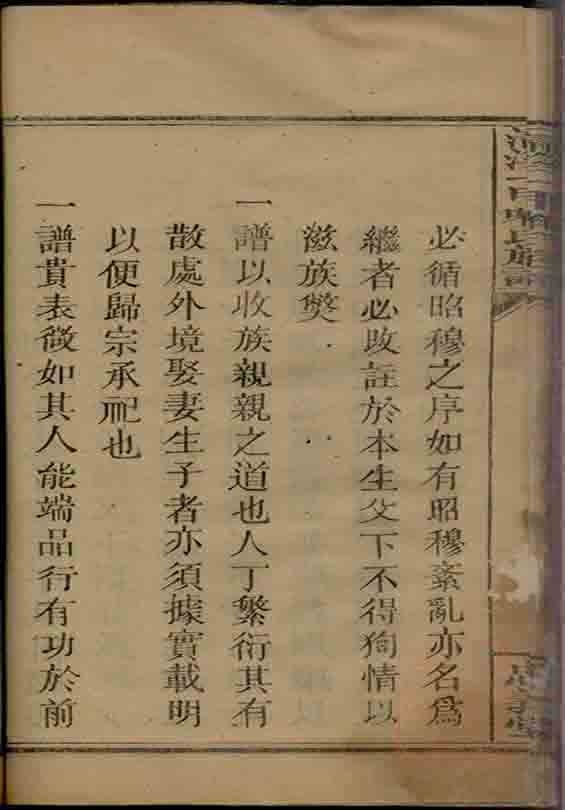 必循昭穆之序如有昭穆紊亂亦名爲
繼者必改註於本生父下不得狥情以
滋族獘
一譜以收族親親之道也人丁繁衍其有
散處外境娶妻生子者亦須據實載明
以便歸宗承祀也
一譜貴表微如其人能端品行有功於前